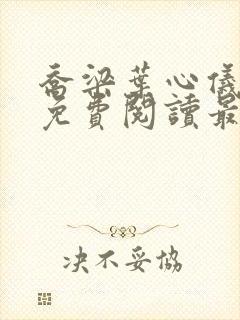 喬梁葉心儀
免費閱讀最
决不妥協